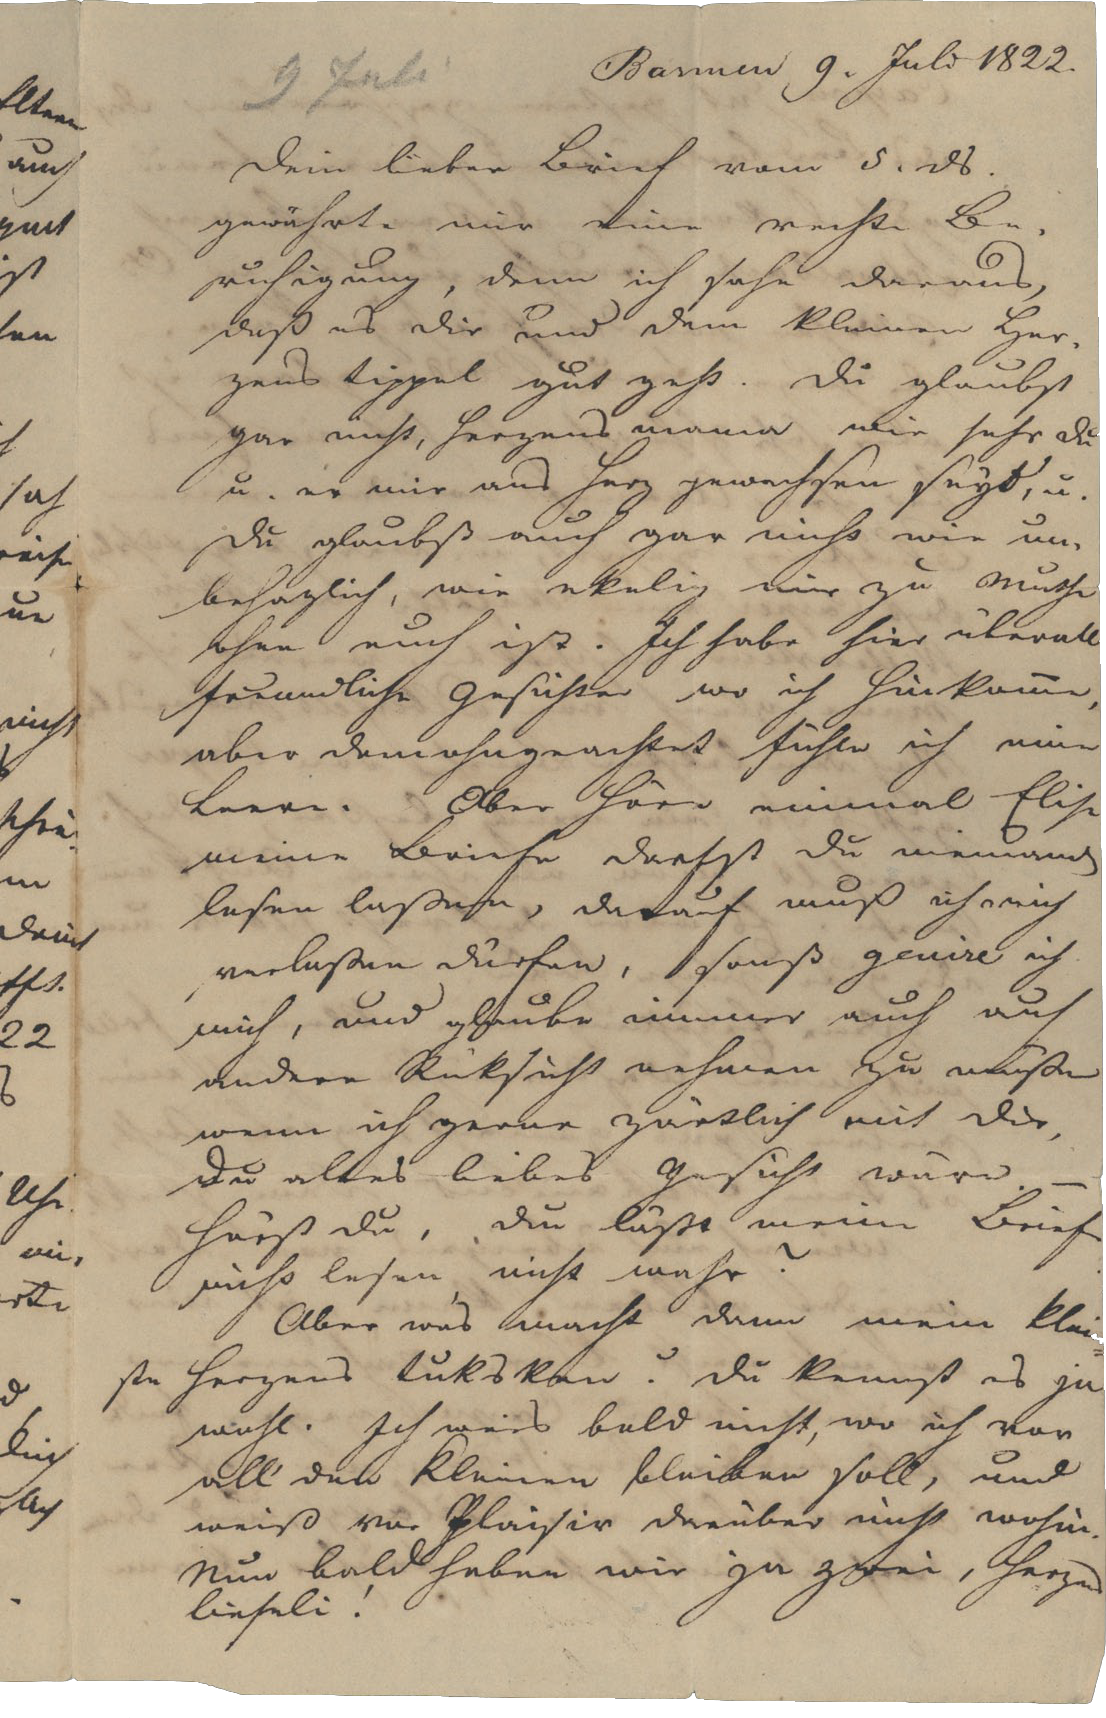 9 Juli
Barmen 9. Juli 1822.
Dein lieber Brief vom 5. ds.
gewährte mir eine rechte Be-
ruhigung, denn ich sahe daraus,
daß es dir und dem kleinen Her-
zens tippel gut geht. Du glaubst
gar nicht, Herzens mama wie sehr du
u. er mir ans Herz gewachsen seyd, u.
Du glaubst auch gar nicht wie un-
behaglich, wie ekelig mir zu Muthe
ohne euch ist. Ich habe hier überall
freundliche Gesichter wo ich hinkom̅e,
aber demohngeachtet fühle ich eine
Leere. Aber höre einmal Elise
meine Briefe darfst du niemand
lesen laßen, darauf muß ich mich
verlaßen dürfen, sonst genire ich
mich, und glaube immer auch auf
andere Rüksicht nehmen zu müßen
wenn ich gerne zärtlich mit dir,
Du altes liebes Gesicht wäre. —
Hörst du, du läßt meine Briefe
nicht lesen, nicht wahr?
Aber was macht denn mein klein-
ste Herzens tuksken? Du kennst es ja
wohl. Ich weis bald nicht, wo ich vor
all den kleinen bleiben soll, und
weiß vor Plaisir darüber nicht wohin.
Nun bald haben wir ja zwei, Herzens
lieseli!